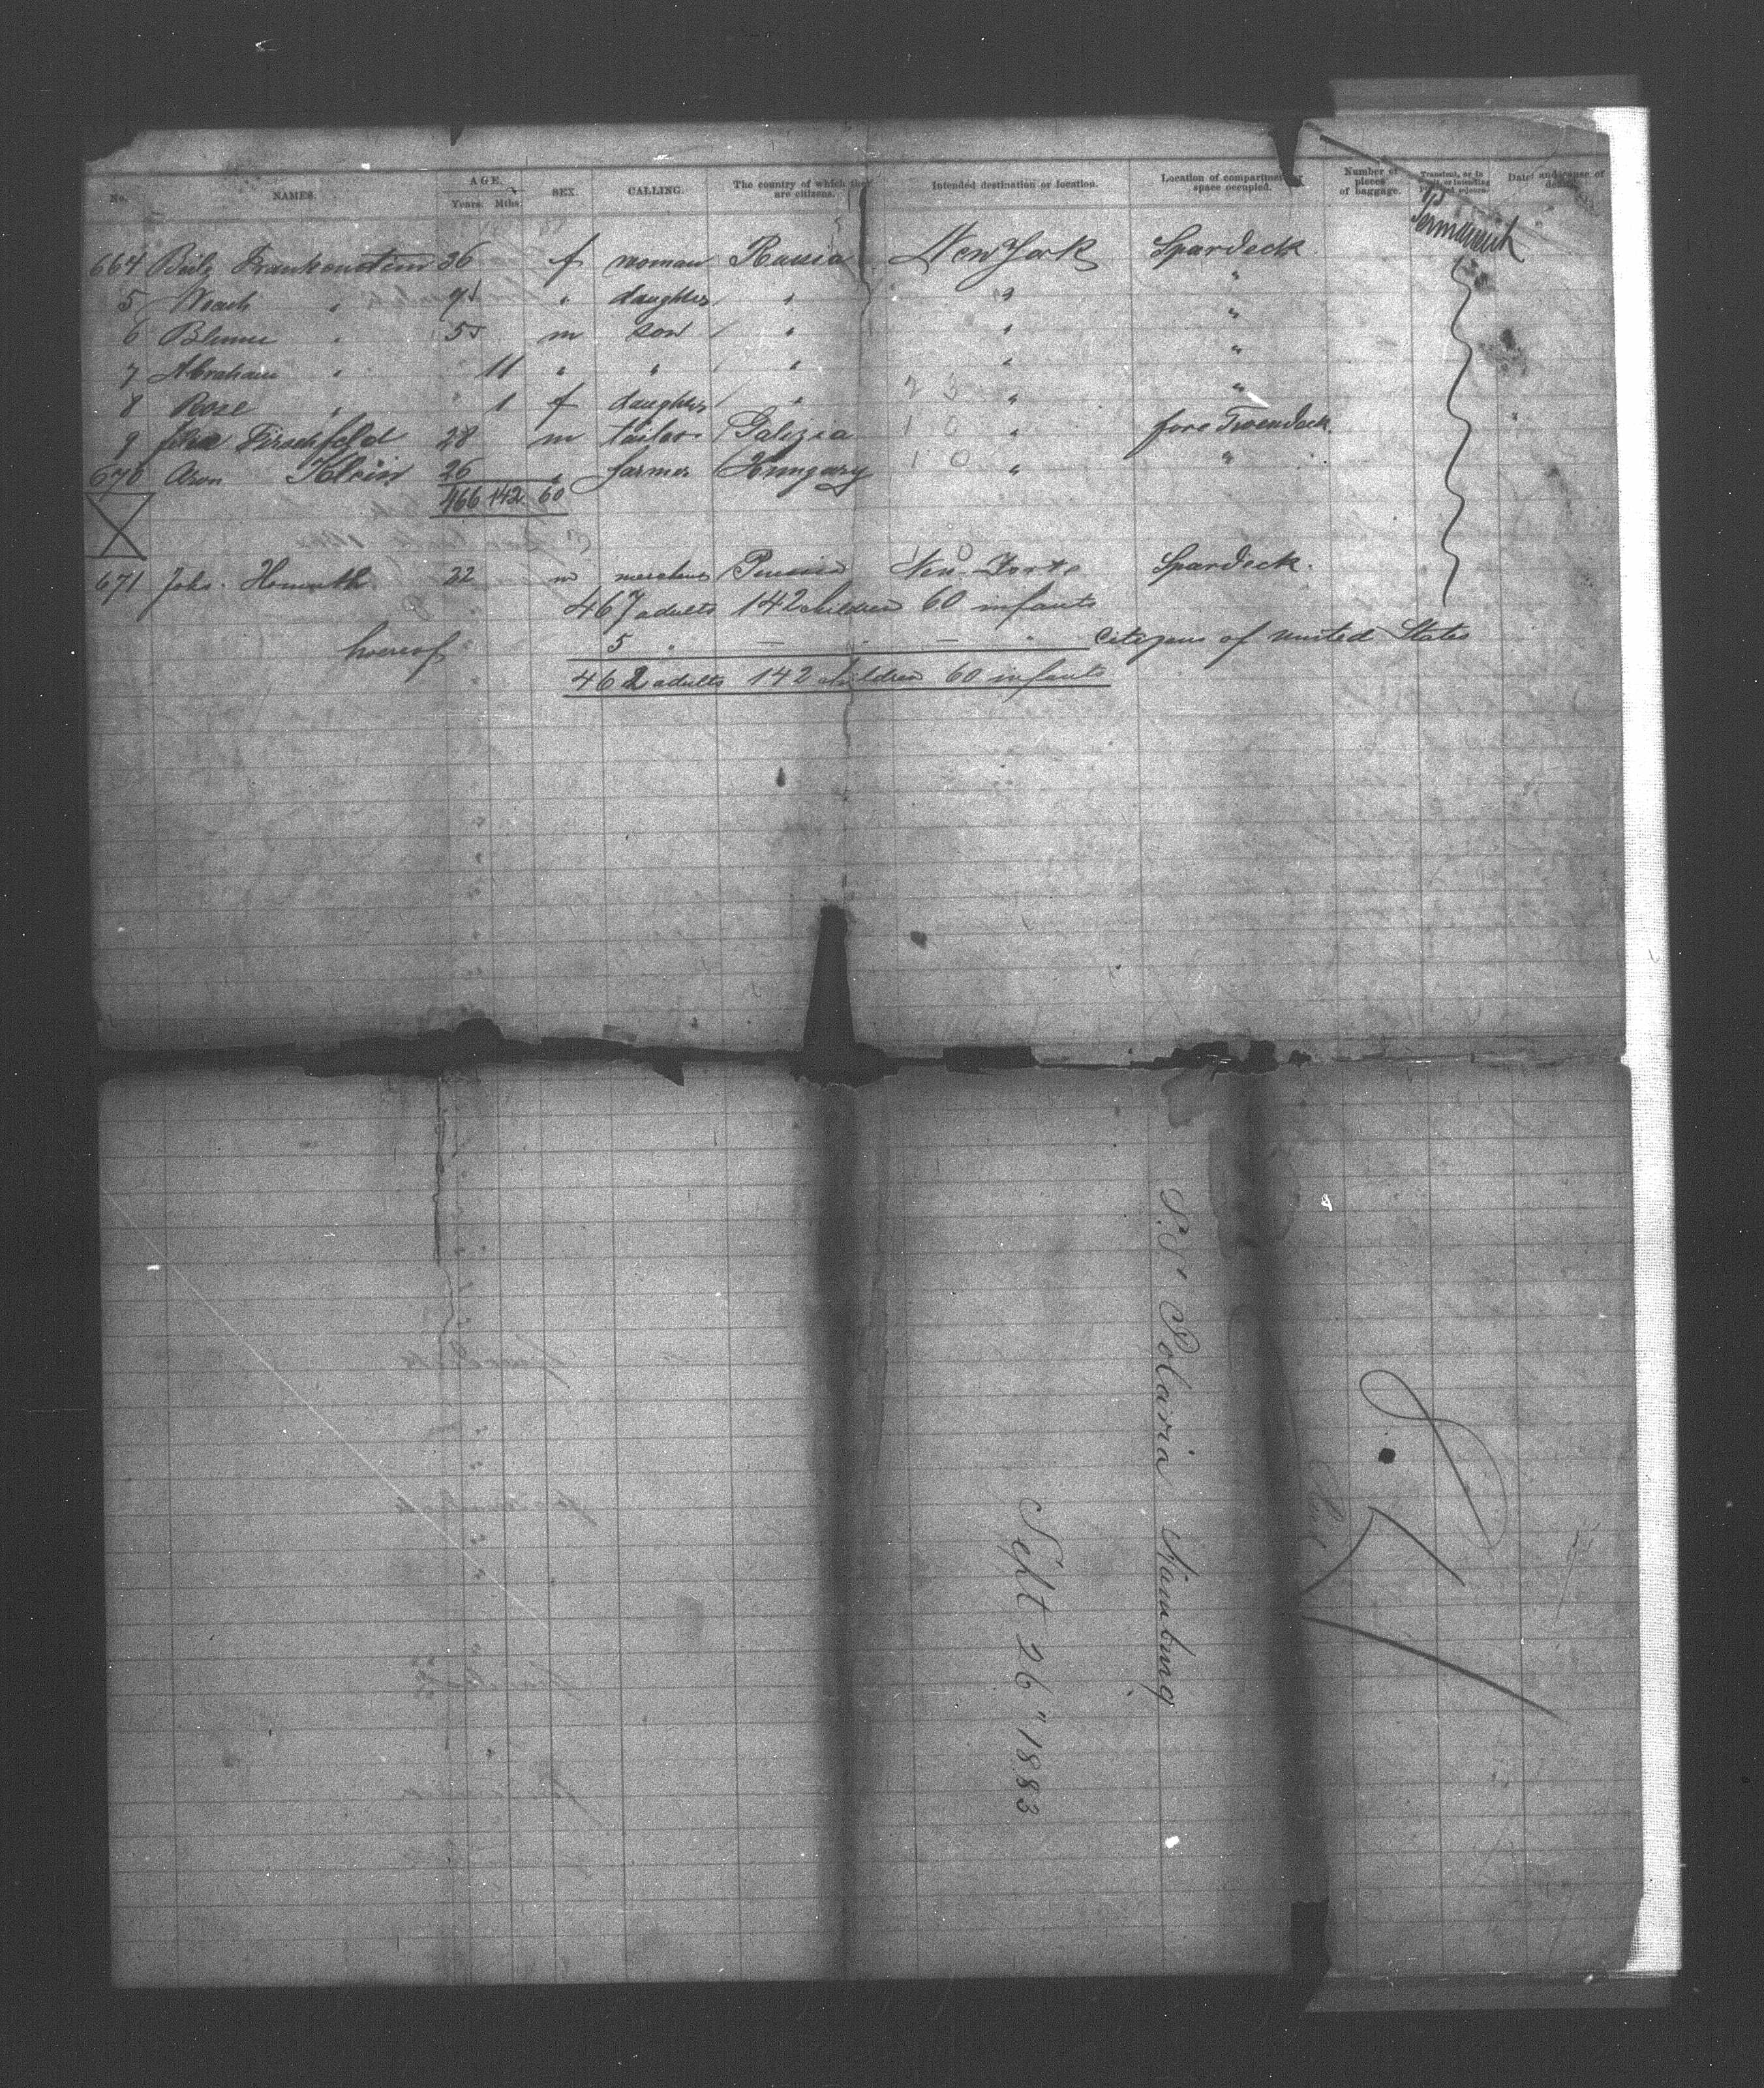 No. NAMES. AGE. Years. Mths. SEX. CALLING. The country of which they are citizens. Intended destination or location. Location of compartment space occupied. Number of pieces of baggage. Transient, or in or intending Date and cause of
Permanent
664 Frankenstein 36 f woman Russia New York Spardeck
5 " " daughter " " "
6 Blume " 5 m son " " "
7 Abraham " 11 " " " " "
8 Rose " 1 f daughter " " "
9 Hirschfeld 28 m tailor Galizia " fore Tweendeck
670 Aron Klein 26 " farmer Hungary " "
466 142 60
671 Johs. Homuth 22 m New-York Spardeck.
467 adults 142 children 60 infants
hoereof 5 " — " — " citizens of united States
462 adults 142 children 60 infants
S.S. Polaria Hamburg
Sept 26" 1883